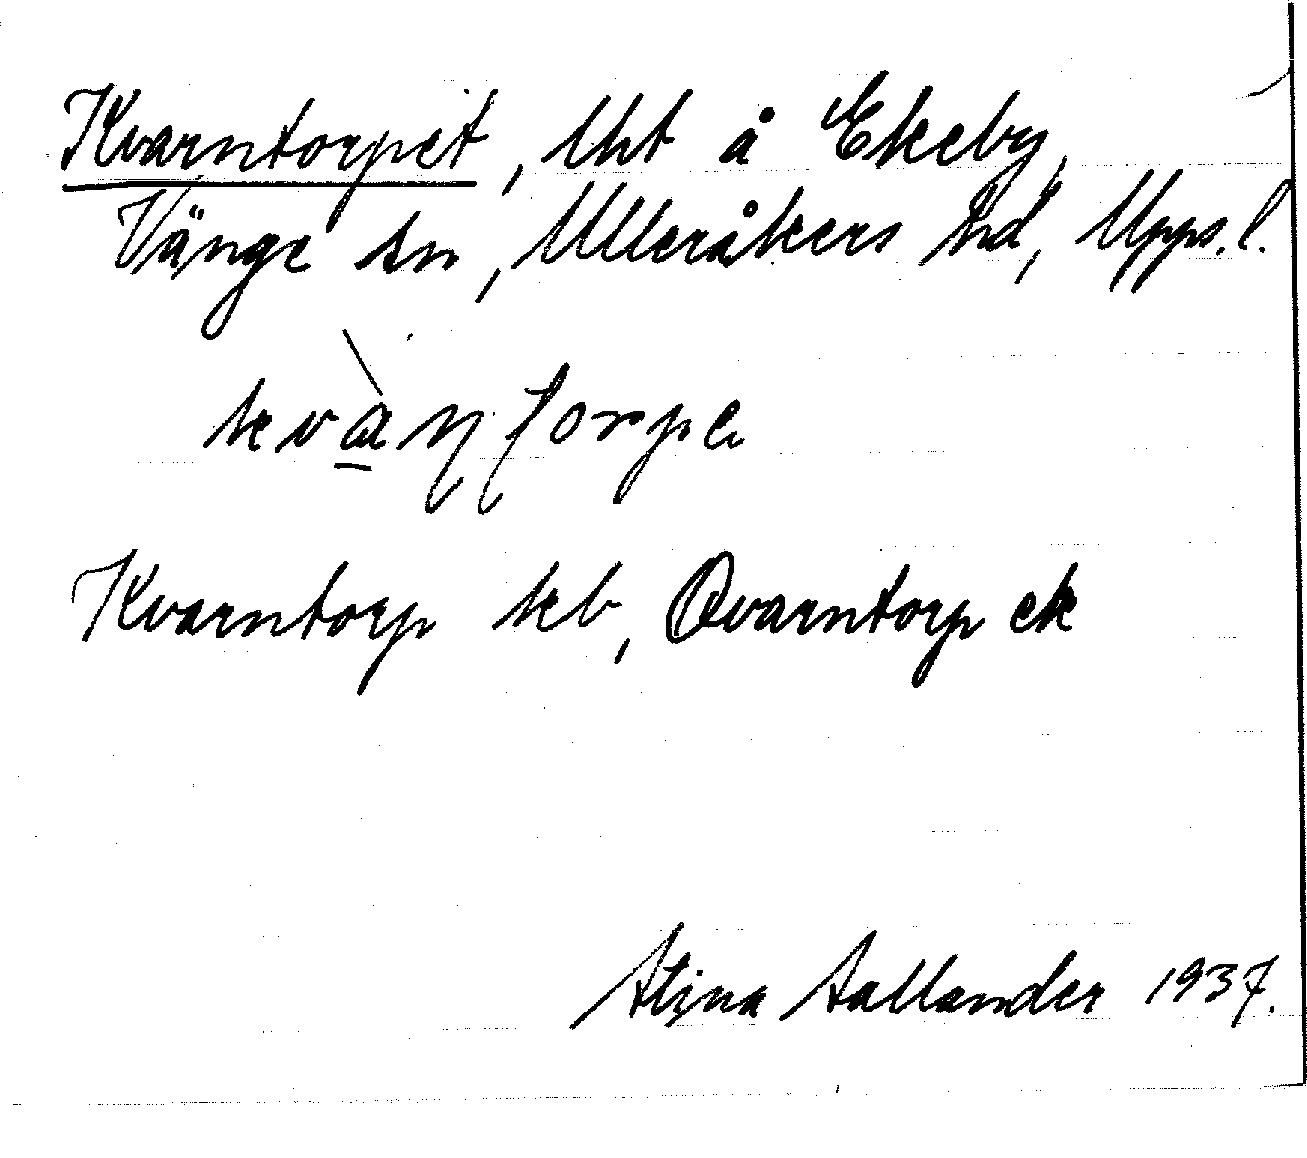 Kvarntorpet, lht å Ekeby,
Vänge sn, Ulleråkers hd, Upps. l.
Kvarntorp kb, Qvarntorp ek
Stina Sallander 1937.